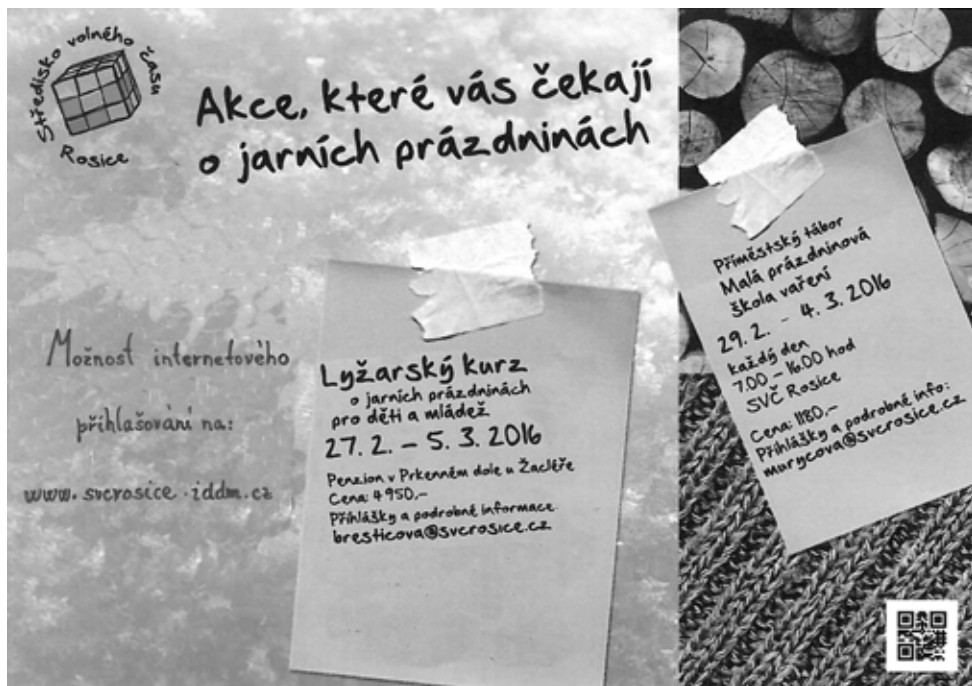 Středisko volného času
Rosice
Akce, které vás čekají
o jarních prázdninách
Možnost internetového
přihlašování na:
www.svcrosice.iddm.cz
Lyžarský kurz
o jarních prázdninách
pro děti a mládež
27. 2. – 5. 3. 2016
Penzion v Prkenném dole u Žacléře
Cena: 4950,–
Přihlášky a podrobné informace
bresticova@svcrosice.cz
Příměstský tábor
Malá prázdninová
škola vaření
29. 2. – 4. 3. 2016
každý den
7.00 – 16.00 hod
SVČ Rosice
Cena: 1180,–
Přihlášky a podrobné info:
murycova@svcrosice.cz